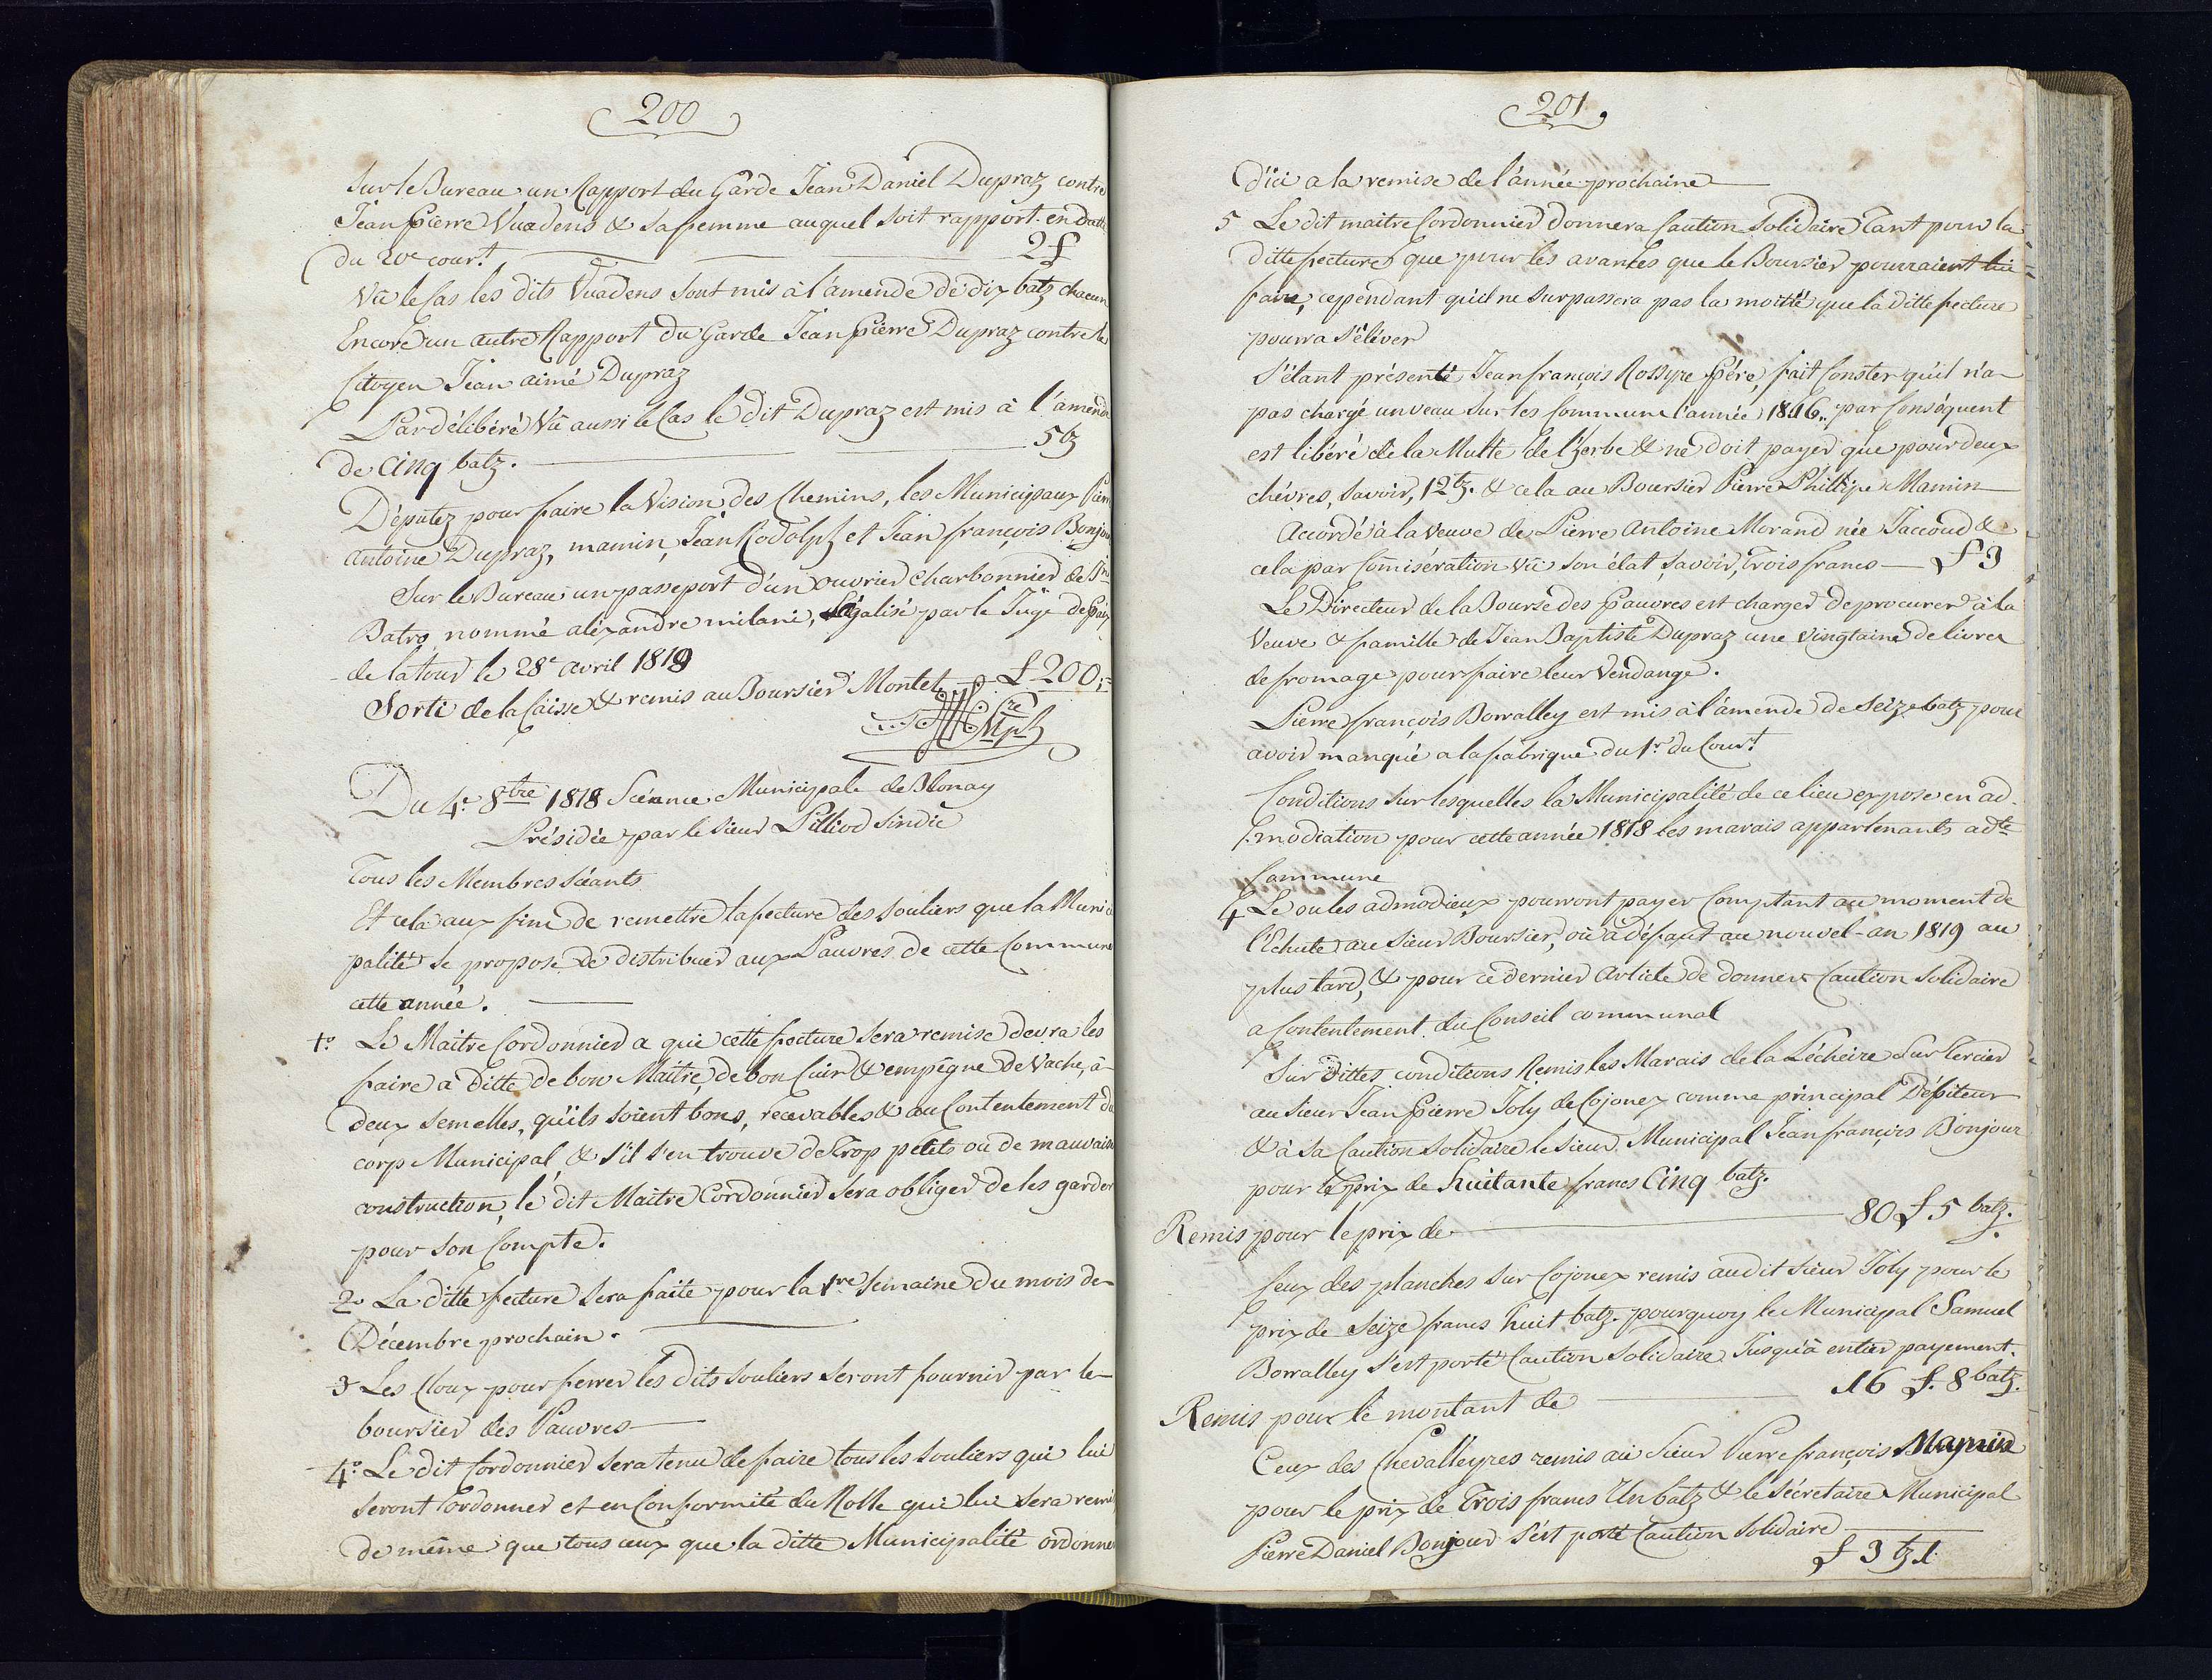 200
Sur le Bureau un Rapport du Garde Jean Daniel Dupraz contre
Jean Pierre Vuadens & sa femme auquel soit rapport en datte
du 20e court.
2 f
Vû le Cas les dits Vuadens sont mis à l'amende de dix batz chacun
Encore un autre Rapport du Garde Jean Pierre Dupraz contre le
Citoyen Jean aimé Dupraz
Par délibéré Vû aussi le Cas le dit Dupraz est mis à l'amende
de Cinq batz. 5 bz
Députez pour faire la Vision des Chemins, les Municipaux Pierre
Antoine Dupraz, mamin, Jean Rodolph et Jean françois Bonjour
Sur le Bureau un passeport d'un ouvrier Charbonnier de
Batro nommé aléxandre milani, légalisé par le Juge de Paix
de la tour le 28e avril 1818
Sorti de la Caisse & remis au Boursier Montet £ 200 ;=
Du 4e. 8bre 1818 Scéance Municipale de Blonay
Présidée par le Sieur Pilliod Sindic
Tous les Membres Séants
Et cela aux fins de remettre la fecture des souliers que la Munici
palité se propose de distribuer aux Pauvres de cette Commune
cette année.
1o. Le Maitre Cordonnier a qui cette fecture sera remise devra les
faire a ditte de bon Maitre, de bon Cuir & empeigne de Vache, à
deux semelles, qu'ils soient bons, recevables & au Contentement du
corp Municipal, & s'il s'en trouve de trop petits ou de mauvaise
construction, le dit Maitre Cordonnier sera obliger de les garder
pour son Compte.
2o La ditte fecture sera faite pour la 1re semaine du mois de
Décembre prochain.
3 Les Cloux pour ferrer les dits souliers seront fournir par le
boursier des Pauvres
4o. Le dit Cordonnier sera tenu de faire tous les souliers qui lui
seront Cordonner et en Conformité du Rolle qui lui sera remis
de même que tous ceux que la ditte Municipalité ordonne
201.
D'ici a la remise de l'année prochaine
5 Le dit maitre Cordonnier donnera Caution Solidaire Tant pour la
ditte fecture que pour les avances que le Boursier pourraient lui
faire, cependant qu'il ne surpassera pas la moitié que la ditte fecture
pourra s'éléver
S'étant présenté Jean françois Rossyre Père, fait Conster qu'il n'a
pas chargé un veau sur les Commune l'année 1816. par Conséquent
est libéré de la Multe de l'herbe & ne doit payer que pour deux
chévres, savoir, 12 bz. & cela au Boursier Pierre Phillipe Mamin
Accordé à la Veuve de Pierre Antoine Morand née Jaccoud &
cela par Comisération vû son état, savoir, Trois francs £ 3
Le Directeur de la Bourse des Pauvres est charger de procurer à la
Veuve & famille de Jean Baptiste Dupraz une Vingtaine de livres
de fromage pour faire leur Vendange.
Pierre françois Borralley est mis à l'amende de Seize batz pour
avoir manqué a la fabrique du 1r. du Court
Conditions sur lesquelles la Municipalité de ce lieu expose en ad-
modiation pour cette année 1818 les marais appartenants a dte
Commune
Le ou les admodieux pourront payer Comptant au moment de
l'Echute au Sieur Boursier, ou à défaut au nouvel-an 1819 au
plus tard, & pour ce dernier Article de donner Caution Solidaire
a Contentement du Conseil communal
Sur Dittes conditions Remis les Marais de la Lécheire Sur Tercier
au Sieur Jean Pierre Joly de Cojonex comme principal Débiteur
& à sa Caution Solidaire le Sieur Municipal Jean françois Bonjour
pour le prix de huitante francs Cinq batz.
Remis pour le prix de 80 £ 5 batz.
Ceux des planches sur Cojonex remis audit Sieur Joly pour le
prix de Seize francs huit batz. pourquoy le Municipal Samuel
Borralley s'est porté Caution Solidaire Jusqu'à entier payement.
Remis pour le montant de 16 £. 8 batz.
Ceux des Chevalleyres remis au Sieur Pierre françois Mamin
pour le prix de Trois francs Un batz & le Sécretaire Municipal
Pierre Daniel Bonjour s'est porté Caution Solidaire
£ 3 bz 1.